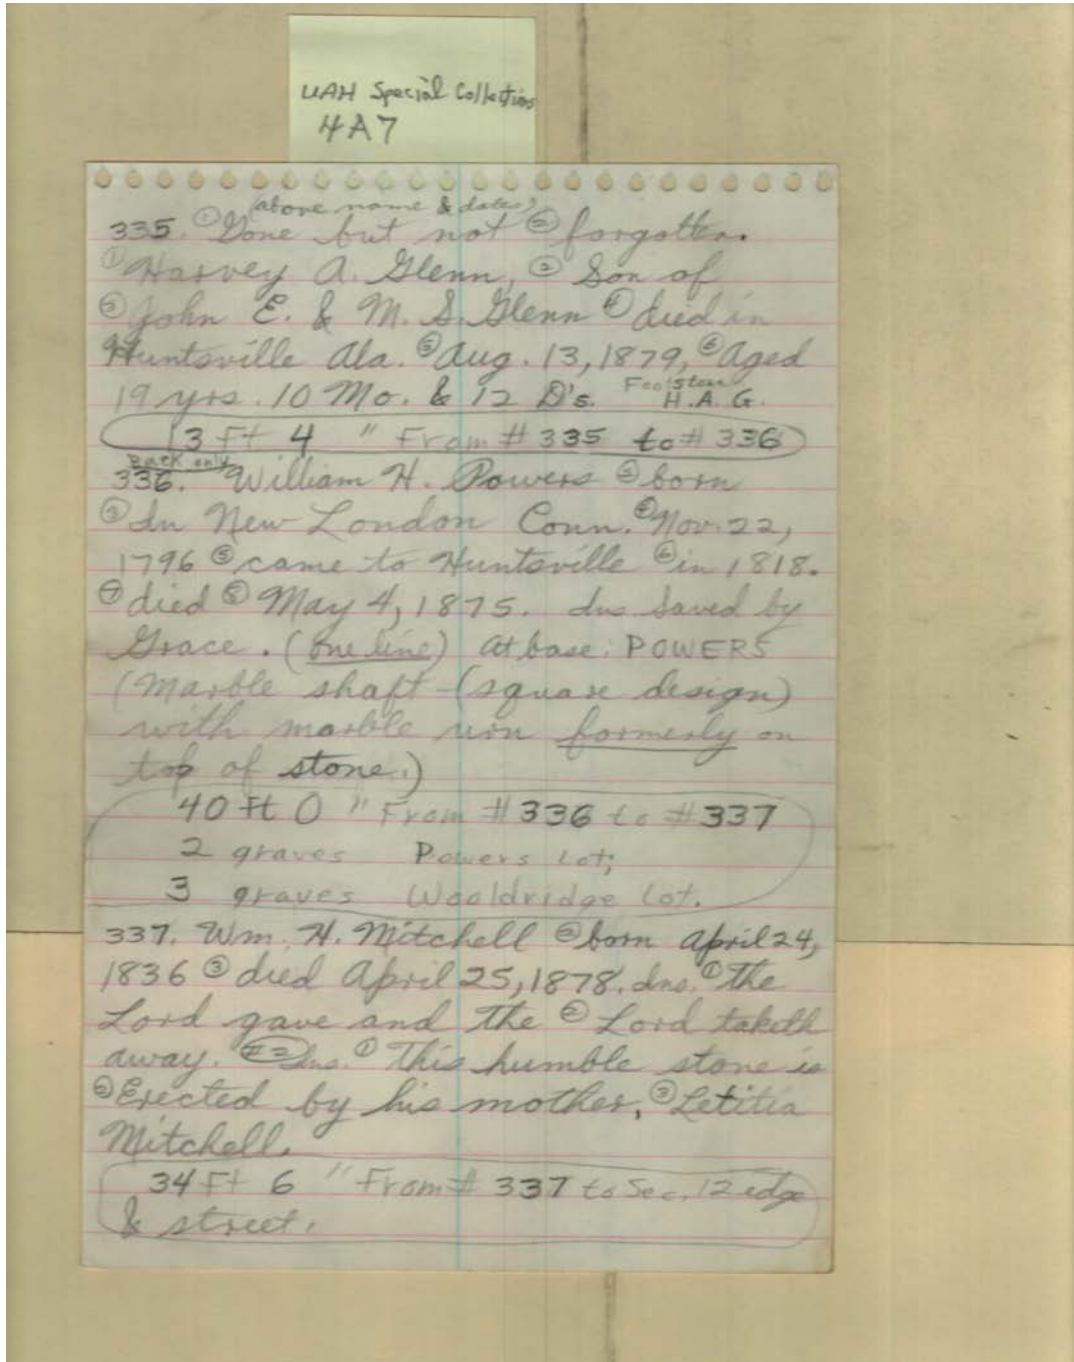 UAH Special Collections
4A7
(above name & dates)
335. ① Gone but not ② forgotten.
① Harvey A. Glenn, ② Son of
③ John E. & M. S. Glenn ④ died in
Huntsville Ala. ⑤ Aug. 13, 1879, ⑥ Aged
19 yrs. 10 Mo. & 12 D's. Footstone H.A.G.
13 Ft 4 " From # 335 to # 336
Back only
336. William H. Powers ② born
③ In New London Conn. ④ Nov. 22,
1796 ⑤ came to Huntsville ⑥ in 1818.
⑦ died ⑧ May 4, 1875. Ins Saved by
Grace. (one line) At base: POWERS
(Marble shaft - (square design)
with marble urn formerly on
top of stone.)
40 Ft 0 " From # 336 to # 337
2 graves Powers Lot;
3 graves Wooldridge Lot.
337. Wm. H. Mitchell ② born April 24,
1836 ③ died April 25, 1878. Ins. ① The
Lord gave and the ② Lord taketh
away. #2 Ins. ① This humble stone is
② Erected by his mother, ③ Letitia
Mitchell.
34 Ft 6 " From # 337 to Sec. 12 edge
& street.